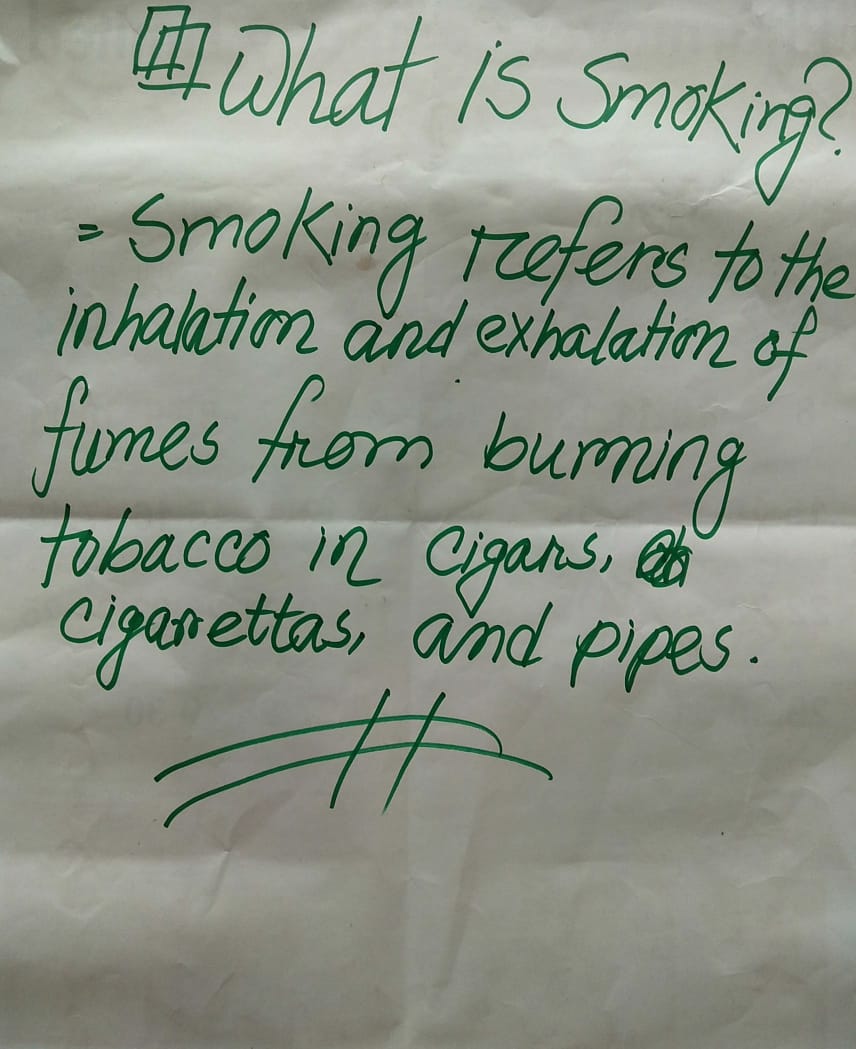 What is Smoking?
= Smoking refers to the
inhalation and exhalation of
fumes from burning
tobacco in cigars,
cigarettas, and pipes.